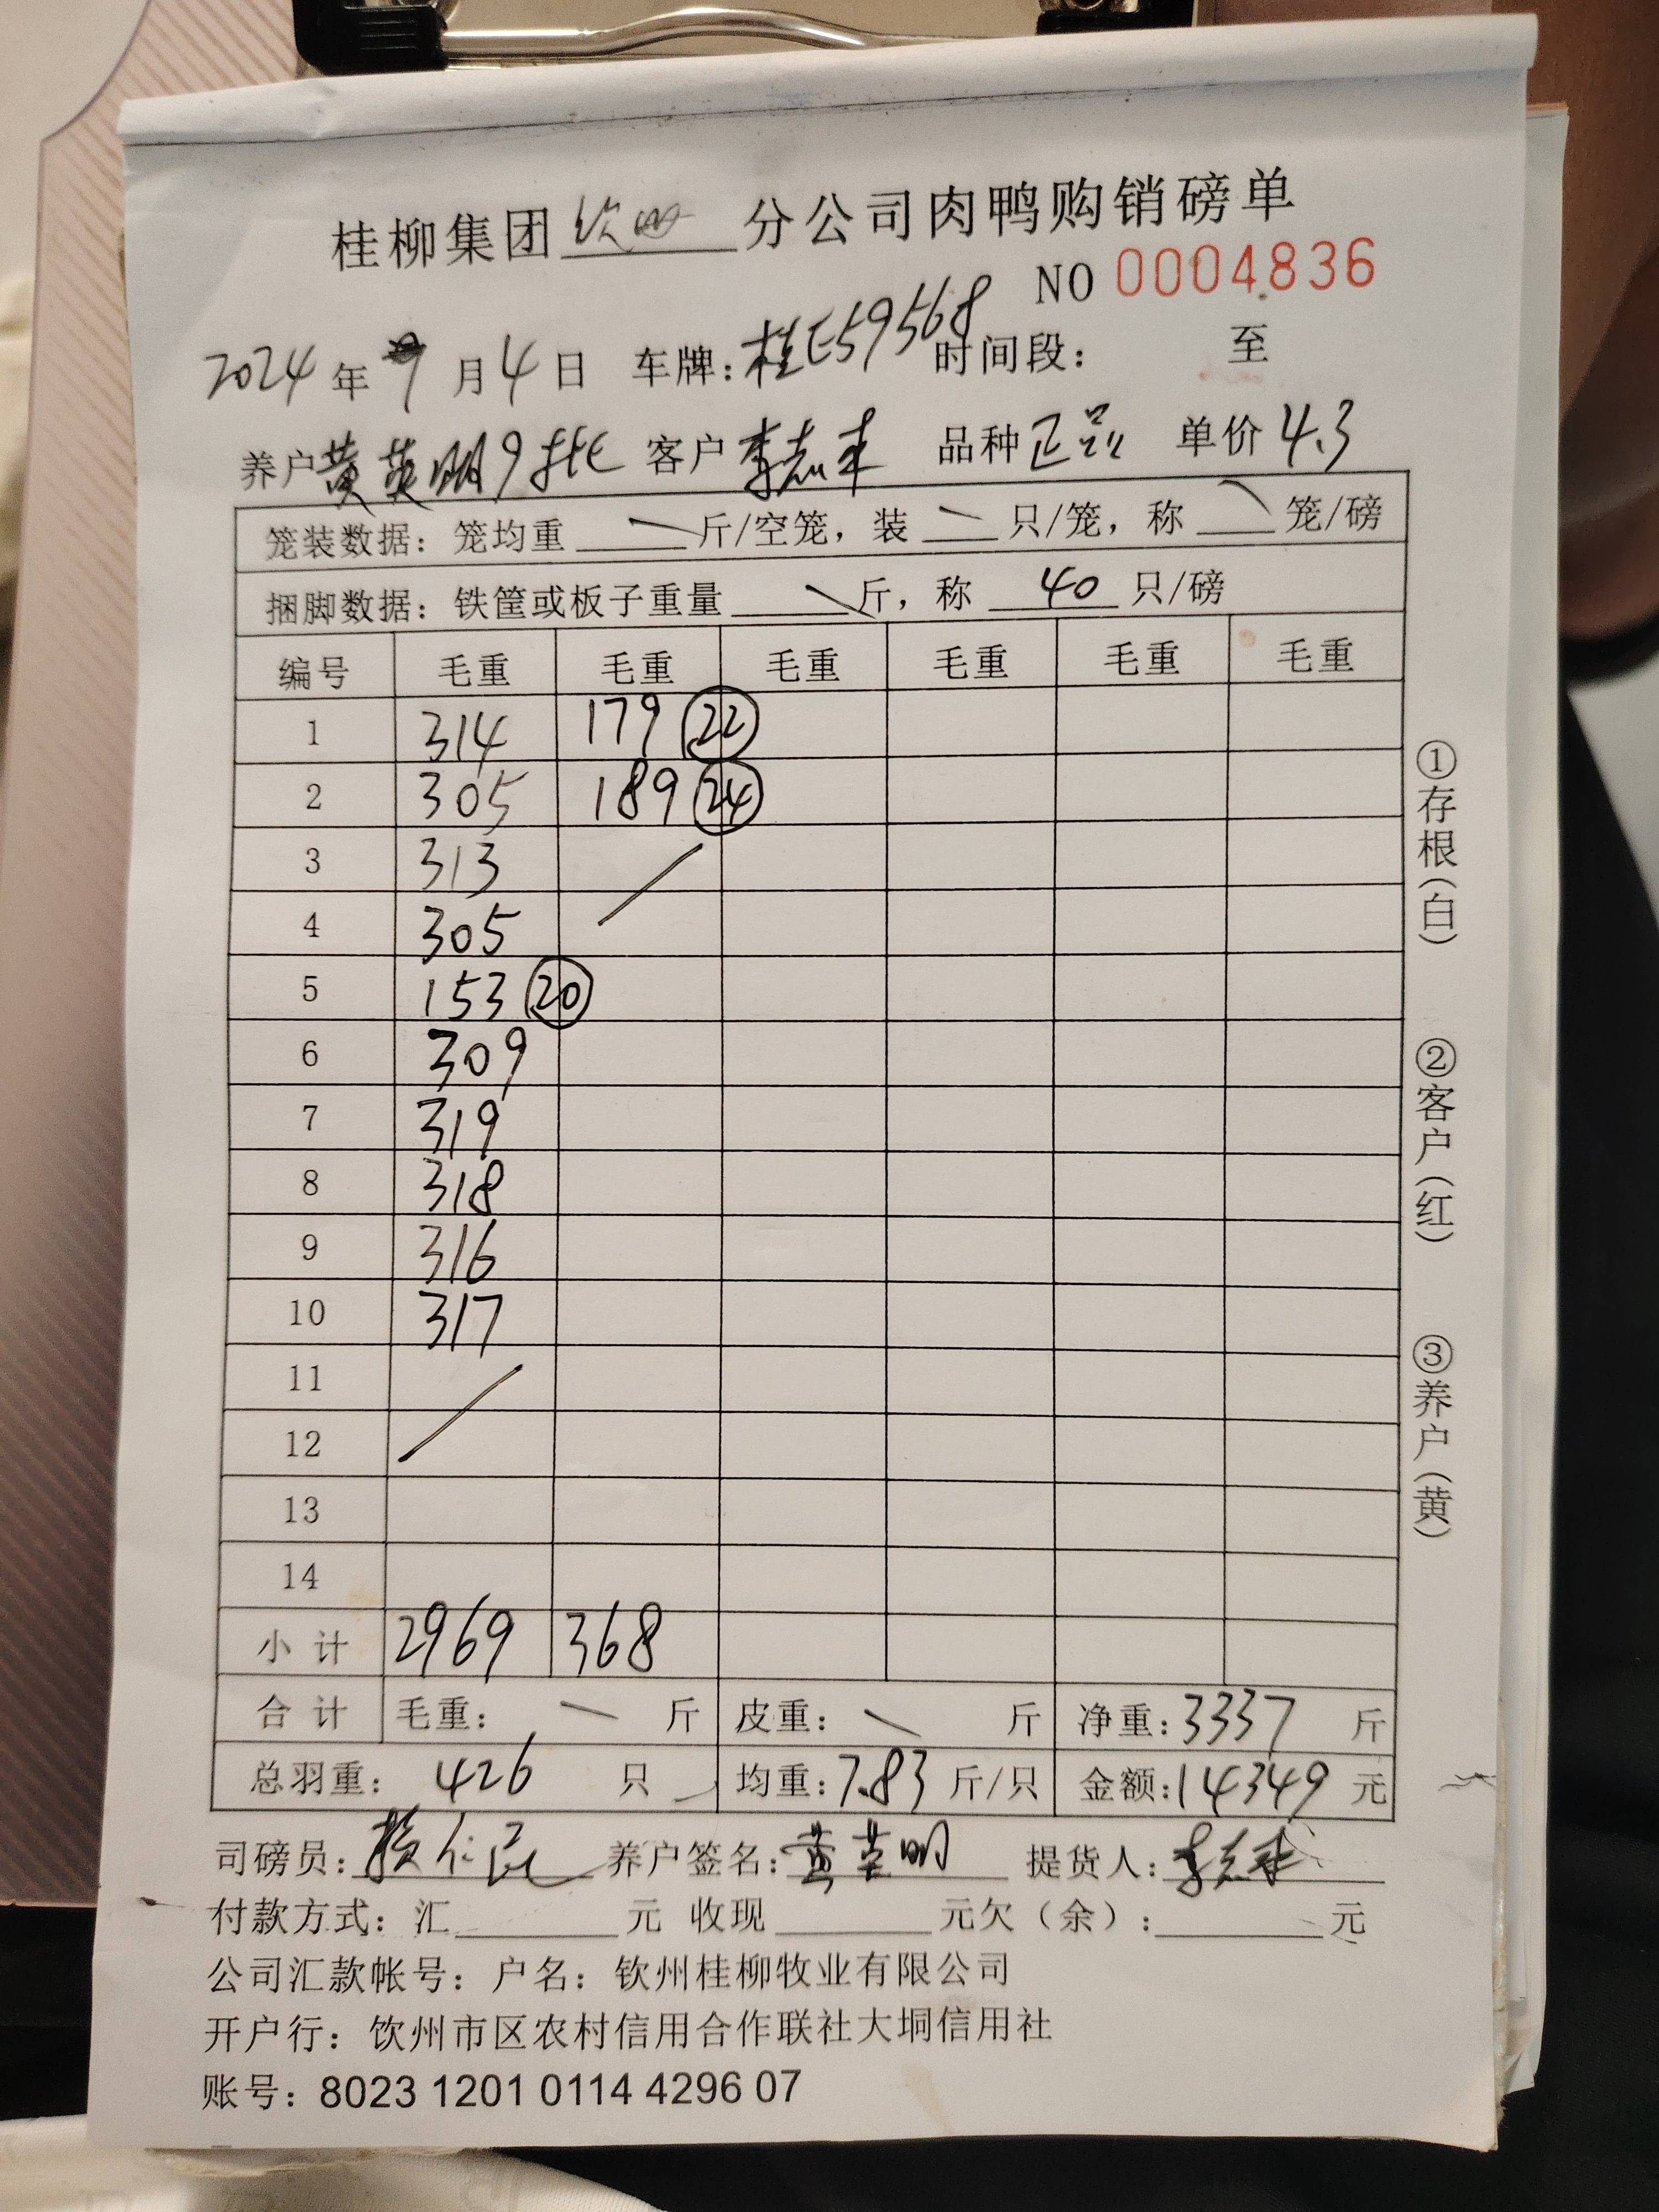 桂柳集团钦州分公司肉鸭购销磅单
NO 0004836
2024年9月4日 车牌:桂E59568 时间段: 至
养户黄英明9批 客户李志丰 品种正品 单价4.3
笼装数据: 笼均重 斤/空笼, 装 只/笼, 称 笼/磅
捆脚数据: 铁筐或板子重量 斤, 称 40 只/磅
编号 毛重 毛重 毛重 毛重 毛重 毛重
1 314 179 22
2 305 189 24
3 313
4 305
5 153 20
6 309
7 319
8 318
9 316
10 317
11
12
13
14
小计 2969 368
合计 毛重: 斤 皮重: 斤 净重:3337 斤
总羽重: 426 只 均重:7.83 斤/只 金额:14349 元
司磅员: 养户签名:黄英明 提货人:李志丰
付款方式: 汇 元 收现 元欠(余): 元
公司汇款帐号: 户名: 钦州桂柳牧业有限公司
开户行: 饮州市区农村信用合作联社大垌信用社
账号: 8023 1201 0114 4296 07
①存根(白)
②客户(红)
③养户(黄)